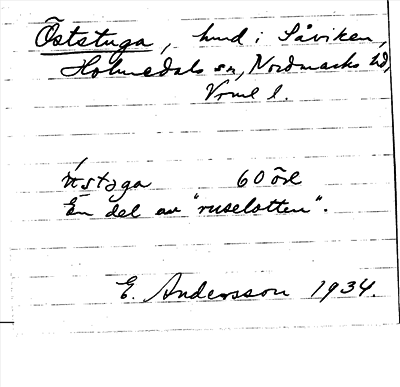 Öststuga, hmd i Såviken,
Holmedals sn, Nordmarks hd,
Vrml l.
ùstəga 60 öre
En del av "ruselotten".
E. Andersson 1934.